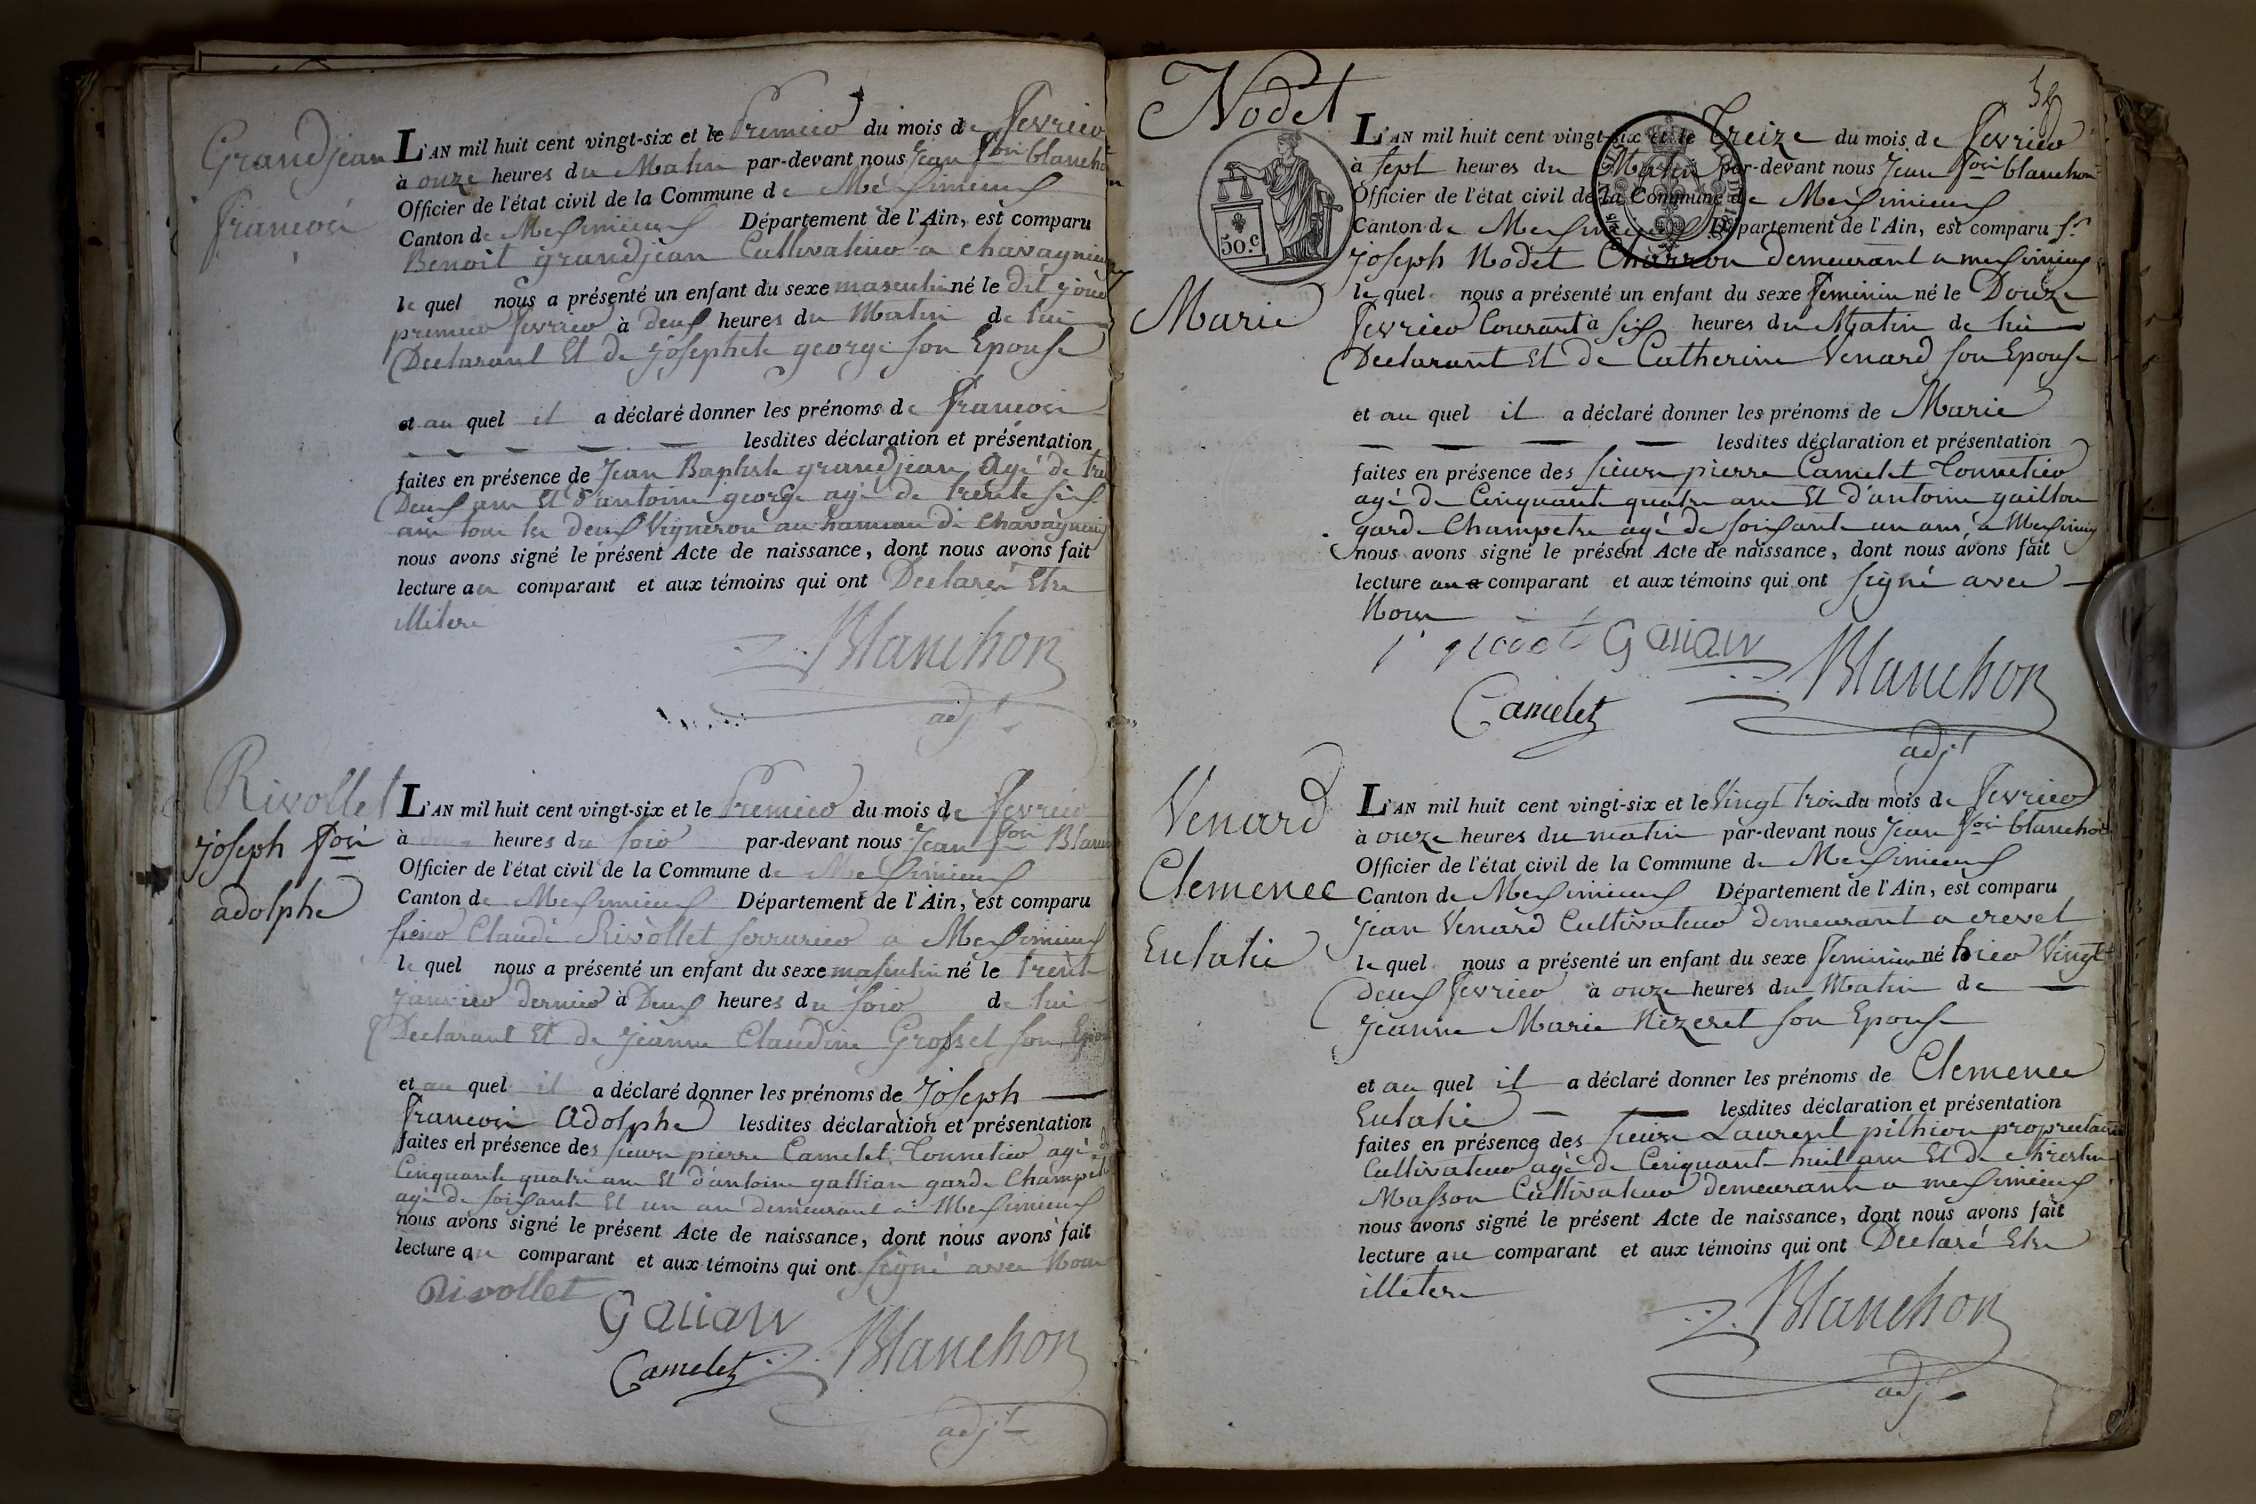 Grandjean
françois
L'AN mil huit cent vingt-six et le Premier du mois de fevrier
à onze heures du Matin par-devant nous Jean fois blanchon
Officier de l'état civil de la Commune de Meximieux
Canton de Meximieux Département de l'Ain, est comparu
Benoit grandjean Cultivateur a chavagnieux
le quel nous a présenté un enfant du sexe masculin né le dit jour
premier fevrier à deux heures du Matin de lui
Declarant Et de josephete george son Epouse
et au quel il a déclaré donner les prénoms de françois
lesdites déclaration et présentation
faites en présence de Jean Baptiste grandjean agé de
Deux ans Et d'antoine george agé de trente six
ans tous les deux Vignerons au hameau de Chavagnieux
nous avons signé le présent Acte de naissance, dont nous avons fait
lecture au comparant et aux témoins qui ont Declarés Etre
illiteré
Blanchon
adjt
Rivollet
joseph fois
adolphe
L'AN mil huit cent vingt-six et le Premier du mois de fevrier
à heures du soir par-devant nous Jean fois
Officier de l'état civil de la Commune de Meximieux
Canton de Meximieux Département de l'Ain, est comparu
sieur Claude Rivollet serrurier a Meximieux
le quel nous a présenté un enfant du sexe masculin né le trente
janvier dernier à Deux heures du soir de lui
Declarant Et de jeanne Claudine Grosset son
et au quel il a déclaré donner les prénoms de joseph
françois Adolphe lesdites déclaration et présentation
faites en présence des sieurs pierre Camelet Tonnelier agé de
Cinquante quatre ans Et d'antoine gallian garde Champetre
agé de soixante Et un an demeurant à Meximieux
nous avons signé le présent Acte de naissance, dont nous avons fait
lecture au comparant et aux témoins qui ont signé avec Nous
Rivollet
Galian
Camelet
Blanchon
adjt
Nodet
Marie
50.c
L'AN mil huit cent vingt-six et le Treize du mois de fevrier
à sept heures du Matin par-devant nous Jean fois blanchon
Officier de l'état civil de la Commune de Meximieux
Canton de Meximieux Département de l'Ain, est comparu sr
joseph Nodet Charron demeurant a meximieux
le quel nous a présenté un enfant du sexe feminin né le Douze
fevrier Courant à six heures du Matin de lui
Declarant Et de Catherine Venard son Epouse
et au quel il a déclaré donner les prénoms de Marie
lesdites déclaration et présentation
faites en présence des sieurs pierre Camelet Tonnelier
agé de Cinquante quatre ans Et d'antoine
garde Champetre agé de soixante un ans a Meximieux
nous avons signé le présent Acte de naissance, dont nous avons fait
lecture au comparant et aux témoins qui ont signé avec
Nous
Galian
Blanchon
Camelet
adjt
Venard
Clemence
Eulalie
L'AN mil huit cent vingt-six et le Vingt trois du mois de fevrier
à onze heures du matin par-devant nous Jean fois blanchon
Officier de l'état civil de la Commune de Meximieux
Canton de Meximieux Département de l'Ain, est comparu
jean Venard Cultivateur demeurant a crevel
le quel nous a présenté un enfant du sexe feminin né hier Vingt
deux fevrier à onze heures du Matin de
jeanne Marie Nizeret son Epouse
et au quel il a déclaré donner les prénoms de Clemence
Eulalie lesdites déclaration et présentation
faites en présence des sieurs Laurent pithion propriétaire
Cultivateur agé de Cinquante huit ans Et de
Masson Cultivateur demeurant a meximieux
nous avons signé le présent Acte de naissance, dont nous avons fait
lecture au comparant et aux témoins qui ont Declaré Etre
illetere
Blanchon
adjt